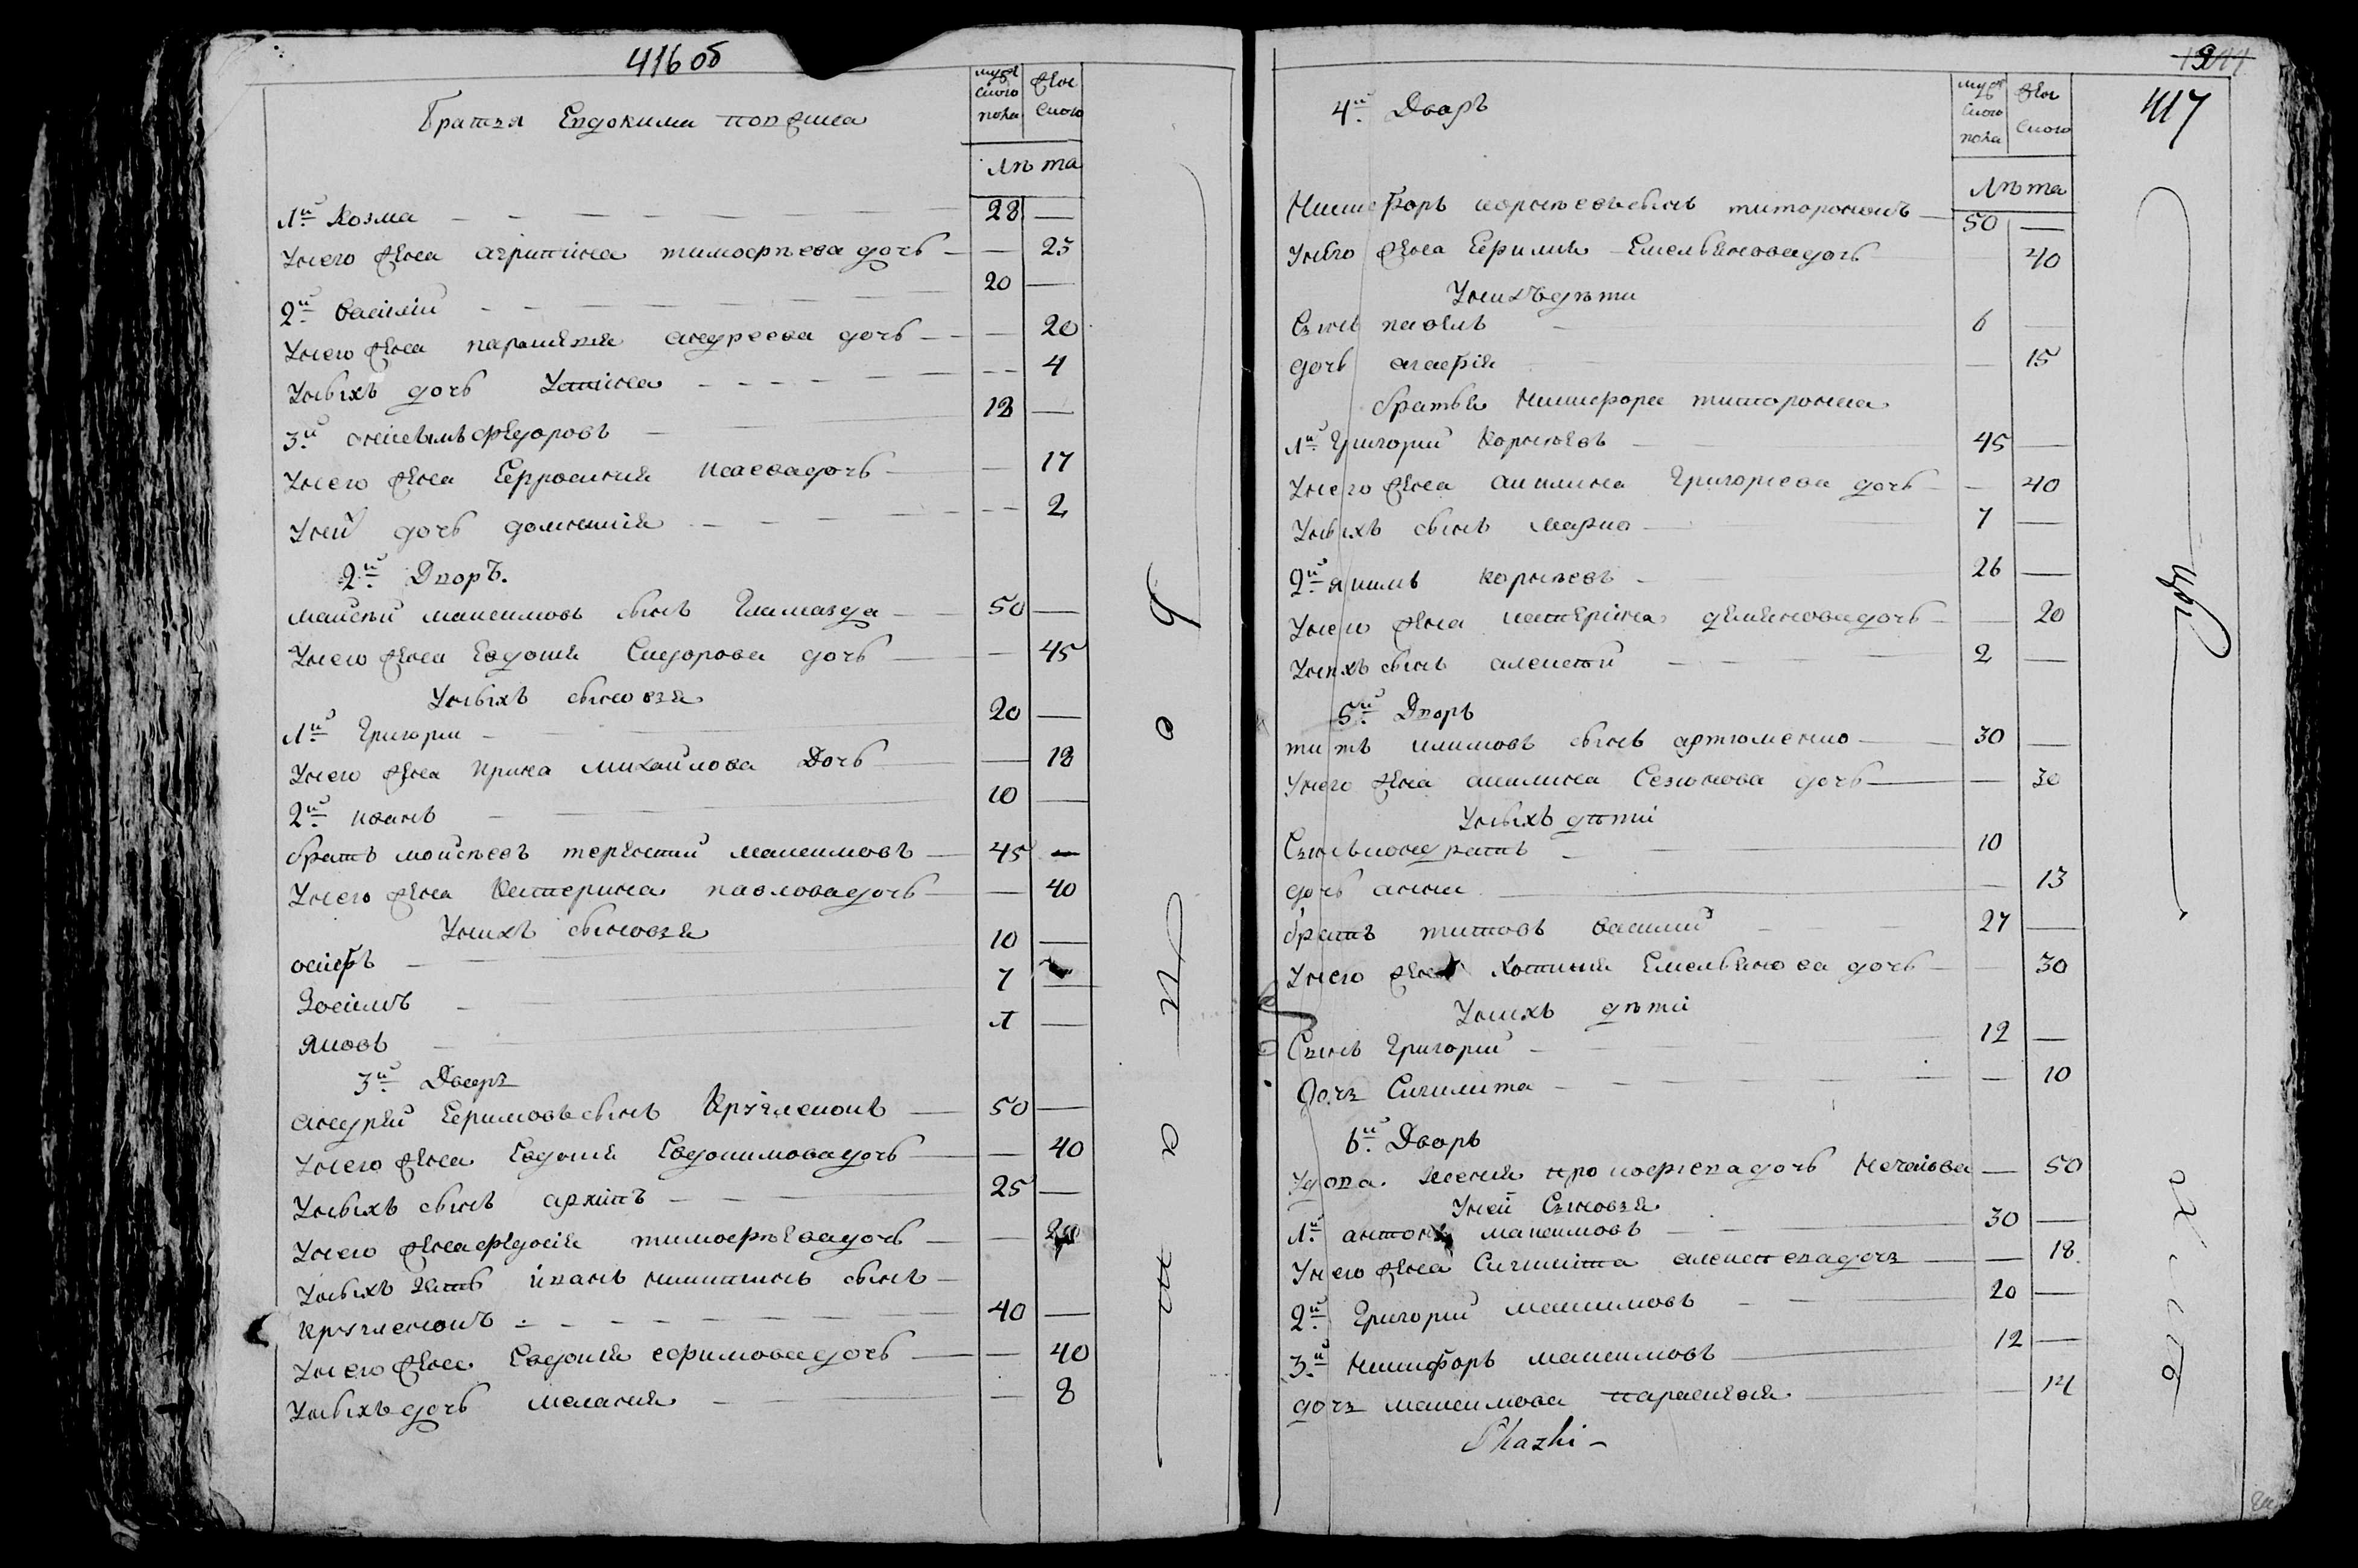 416 об
Братья Евдокима
муж еска
ского ского
пола
Лѣ та
1й Козма 28
Унего жена агрипина тимофѣева дочь 23
2й василій 20
Унего жена параскевия андреева дочь 20
Уныхъ дочь Устинка 4
3й федоровъ 18
Унего жена Ефросиния исаева дочь 17
Уней дочь домникия 2
2й Дворъ.
моисей максимовъ сынъ 50
Унего жена Евдокия Сидорова дочь 45
Уныхъ сыновья
1й Григорий 20
Унего жена ирина михайлова Дочь 18
2й иванъ 10
братъ моисѣевъ терентий максимовъ 45
Унего жена Катерина павлова дочь 40
Унихъ сыновья
осифъ 10
Зосимъ 7
яковъ 1
3й Дворъ
андрей Ефимовъ сынъ Кругленокъ 50
Унего жена Евдокия Евдокимова дочь 40
Уныхъ сынъ архипъ 25
Унего жена федосия тимофѣева дочь
Уныхъ зять иванъ никитинъ сынъ
кругленокъ 40
Унего жена Евдокия ефимова дочь 40
Уныхъ дочь мелания 8
417
4й Дворъ
муж
ского ского
пола
Лѣ та
Никифоръ корнѣевъ сынъ титоренокъ 50
Унего жена Ефимия Емельянова дочь 40
Унихъ дѣти
Сынъ павелъ 6
дочь агафия 15
братья никифора титоренка
1й Григорий Корнѣевъ 45
Унего жена акилина Григориева дочь 40
Уныхъ сынъ марко 7
2й якимъ корнѣевъ 26
Унего жена катерина демянова дочь 20
Унихъ сынъ алексей 2
5й Дворъ
титъ климовъ сынъ артюменко 30
Унего жена акилина Сезонова дочь 30
Уныхъ дѣти
Сынъ кондратъ 10
дочь анна 13
братъ титовъ василий 27
Унего жена Хотиния Емельянова дочь 30
Унихъ дѣти
Сынъ Григорий 12
Дочь Сиклита 10
6й Дворъ
Удова ксения прокофиева дочь нечаева 50
Уней Сыновья
1й антонъ максимовъ 30
Унего жена Сиклита алексѣева дочь 18
2й Григорий максимовъ 20
3й никифоръ максимовъ 12
дочь максимова параскевия 14